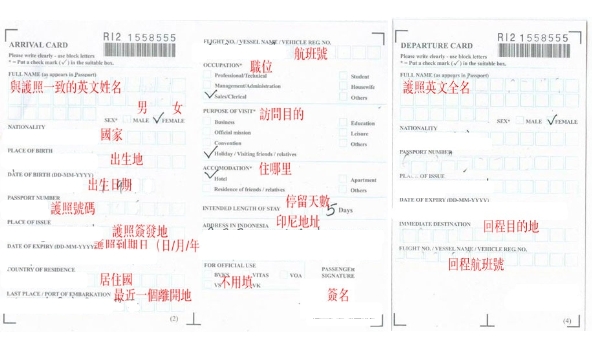 RI2 1558555
ARRIVAL CARD
Please write clearly - use block letters
* = Put a check mark (✓) in the suitable box.
FULL NAME (as appears in Passport)
與護照一致的英文姓名
男 女
SEX* MALE ✓ FEMALE
NATIONALITY
國家
PLACE OF BIRTH
出生地
DATE OF BIRTH (DD-MM-YYYY)
出生日期
PASSPORT NUMBER
護照號碼
PLACE OF ISSUE
護照簽發地
DATE OF EXPIRY (DD-MM-YYYY)
護照到期日（日/月/年
COUNTRY OF RESIDENCE
居住國
LAST PLACE / PORT OF EMBARKATION
最近一個離開地
(2)
FLIGHT NO. / VESSEL NAME / VEHICLE REG. NO.
航班號
OCCUPATION*
職位
Professional/Technical Student
Management/Administration Housewife
✓ Sales/Clerical Others
PURPOSE OF VISIT*
訪問目的
Business Education
Official mission Leisure
Convention Others
✓ Holiday / Visiting friends / relatives
ACCOMODATION*
住哪里
✓ Hotel Apartment
Residence of friends / relatives Others
停留天數
INTENDED LENGTH OF STAY 5 Days
ADDRESS IN INDONESIA
印尼地址
FOR OFFICIAL USE
VITAS VOA
VK
不用填
PASSENGER
SIGNATURE
簽名
RI2 1558555
DEPARTURE CARD
Please write clearly - use block letters
* = Put a check mark (✓) in the suitable box.
FULL NAME (as appears in Passport)
護照英文全名
SEX* MALE ✓ FEMALE
NATIONALITY
PASSPORT NUMBER
PLACE OF ISSUE
DATE OF EXPIRY (DD-MM-YYYY)
IMMEDIATE DESTINATION
回程目的地
FLIGHT NO. / VESSEL NAME / VEHICLE REG. NO.
回程航班號
(4)